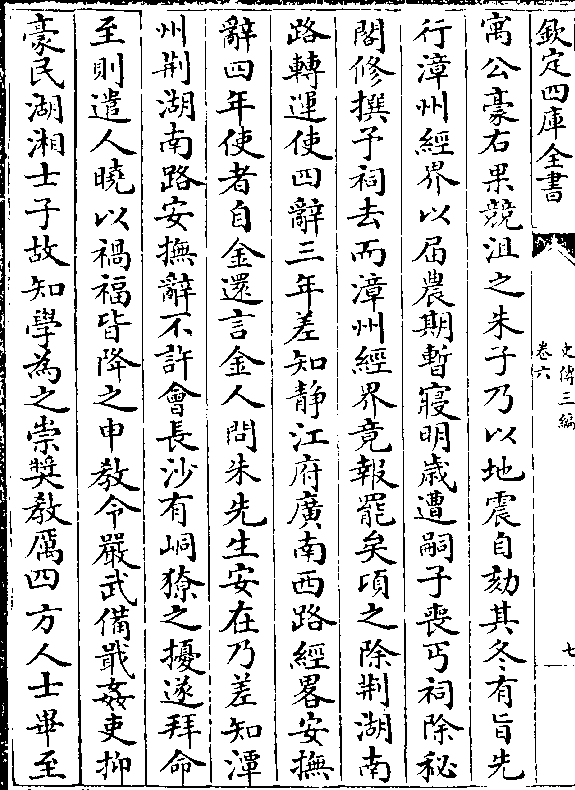 欽定四庫全書
史傳三編
卷六
七
寓公豪右果競沮之朱子乃以地震自劾其冬有旨先
行漳州經界以屆農期暫寢明歲遭嗣子喪丐祠除秘
閣修撰予祠去而漳州經界竟報罷矣頃之除荆湖南
路轉運使四辭三年差知靜江府廣南西路經畧安撫
辭四年使者自金還言金人問朱先生安在乃差知潭
州荆湖南路安撫辭不許會長沙有峒獠之擾遂拜命
至則遣人曉以禍福皆降之申教令嚴武備戢姦吏抑
豪民湖湘士子故知學為之崇獎教厲四方人士畢至